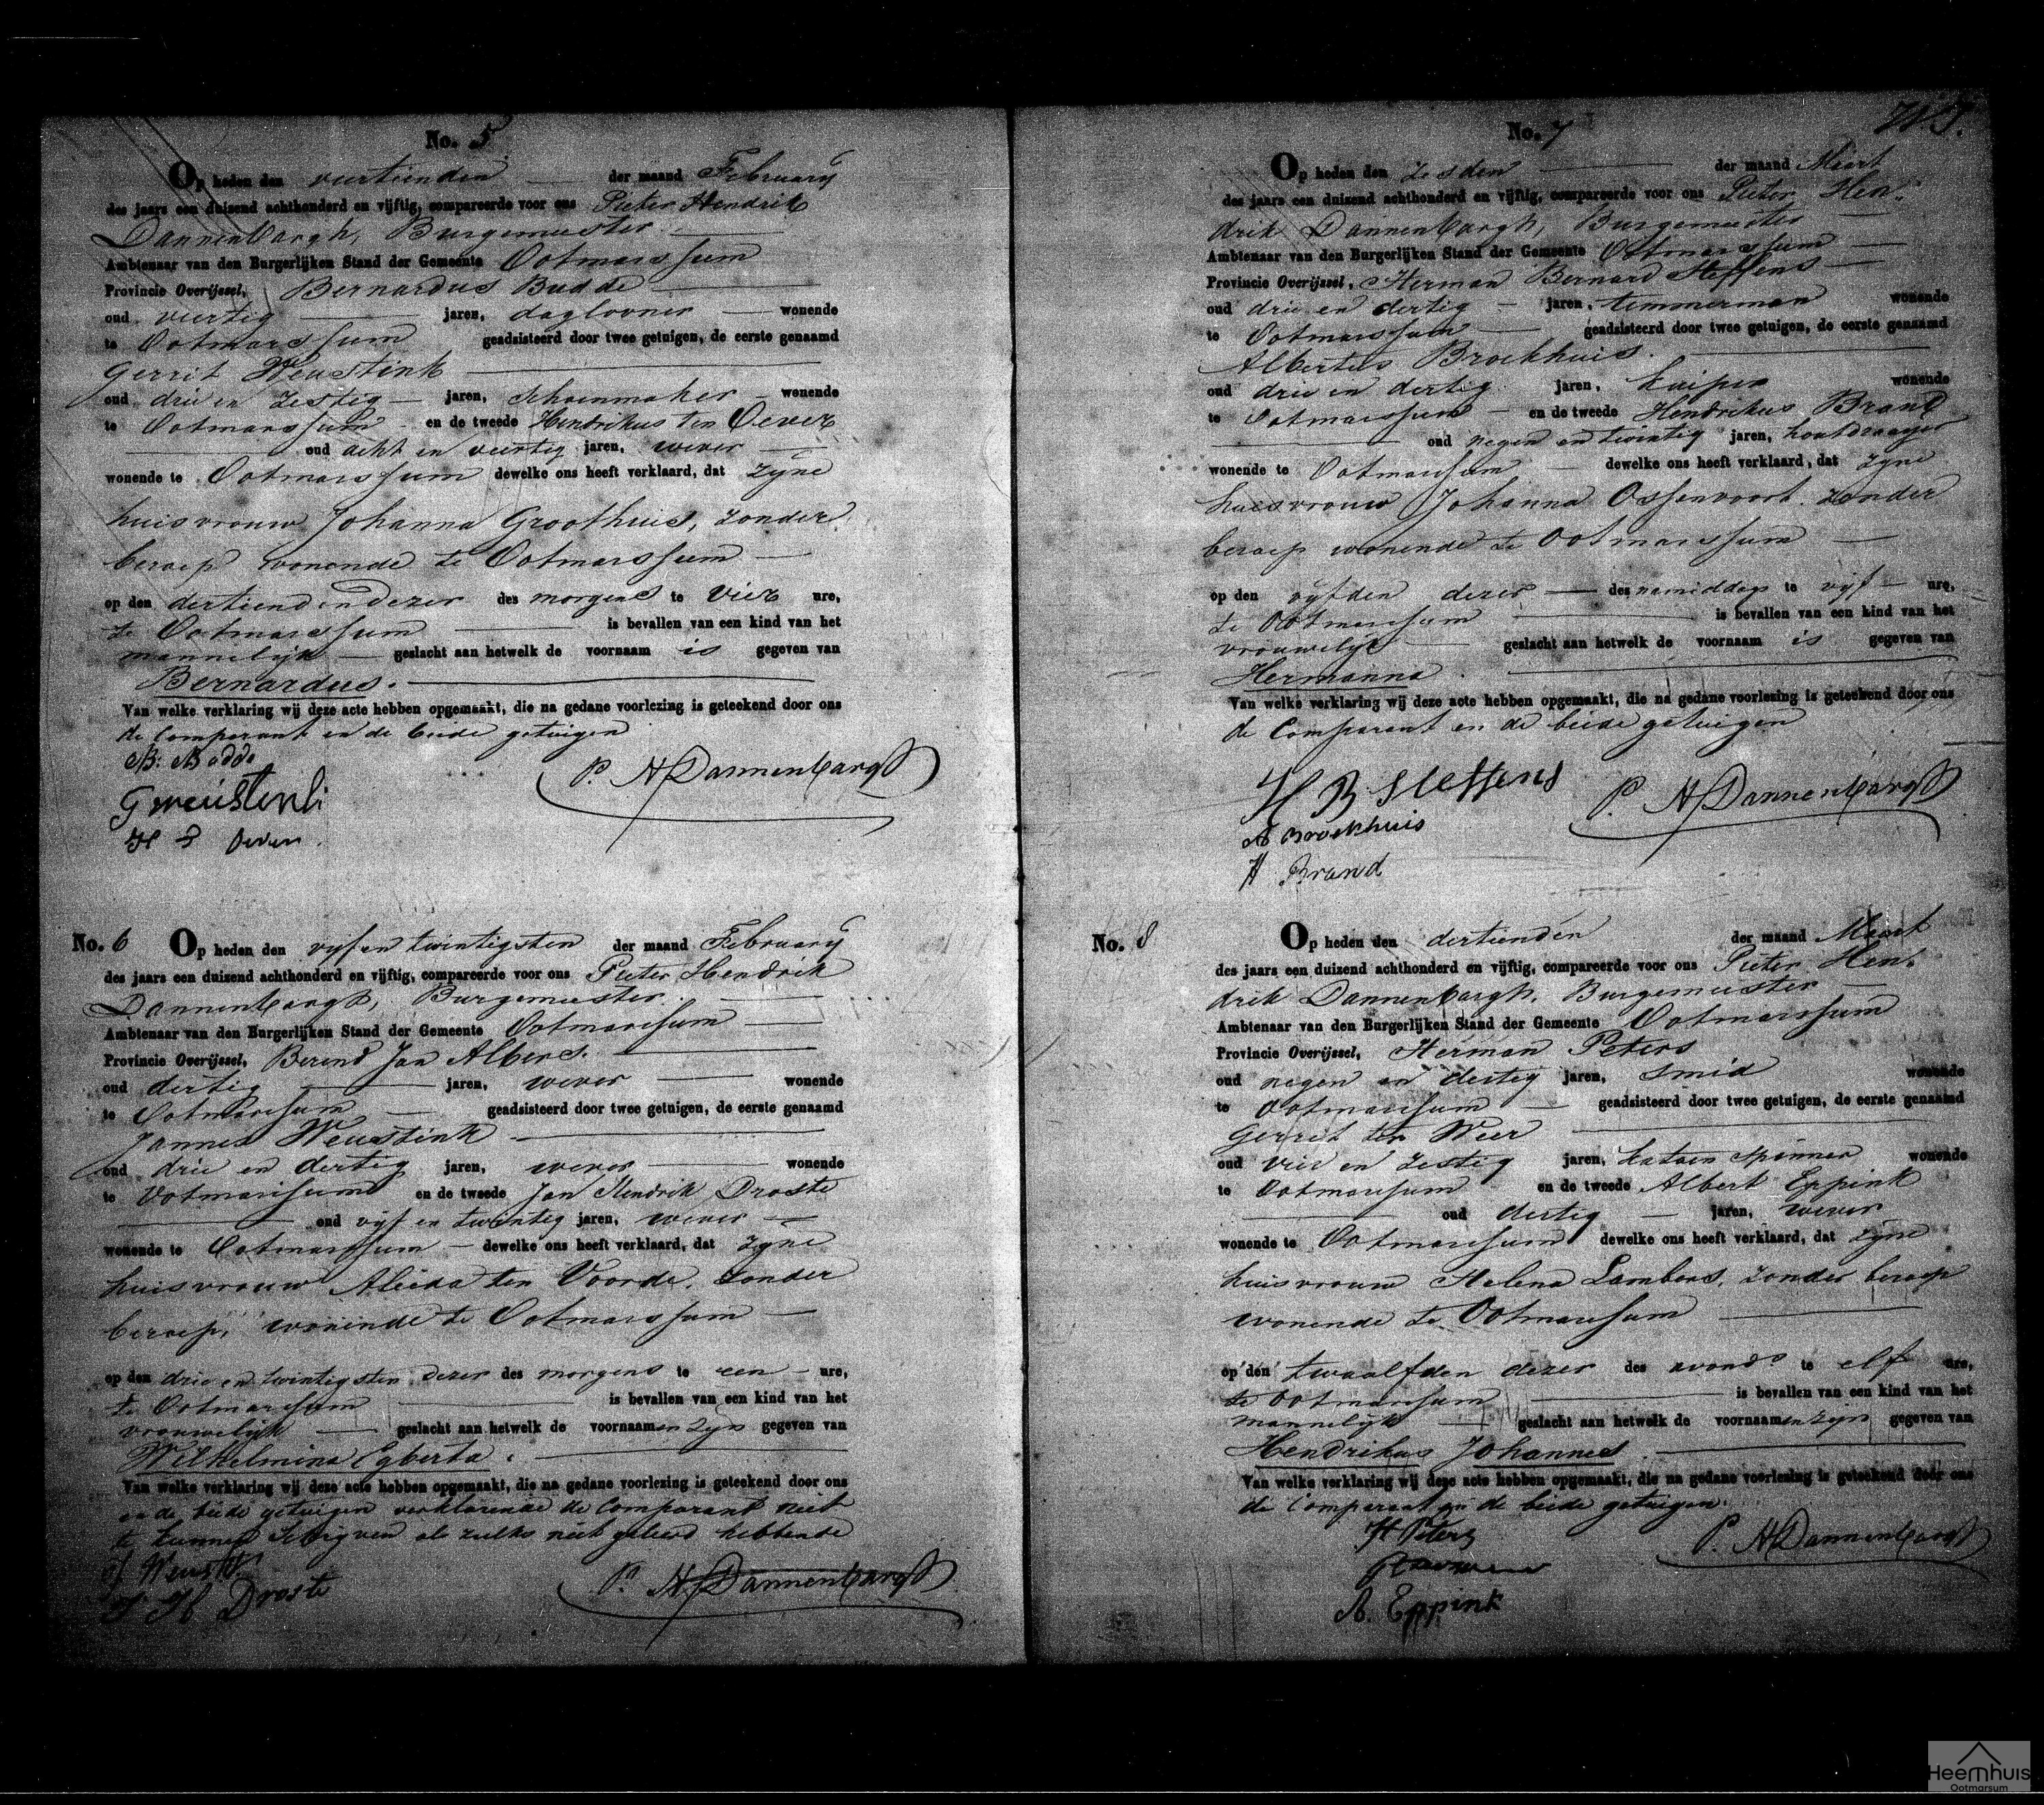 No. 5
Op heden den viertienden der maand February
des jaars een duizend achthonderd en vijftig, compareerde voor ons Pieter Hendrik
Dannenbargh, Burgemeester
Ambtenaar van den Burgerlijken Stand der Gemeente Ootmarssum
Provincie Overijssel, Bernardus Budde
oud viertig jaren, daglooner wonende
te Ootmarssum geadsisteerd door twee getuigen, de eerste genaamd
Gerrit Weustink
oud drie en zestig jaren, schoenmaker wonende
te Ootmarssum en de tweede Hendrikus ten Oever
oud acht en viertig jaren, wever
wonende te Ootmarssum dewelke ons heeft verklaard, dat zyne
huisvrouw Johanna Groothuis, zonder
beroep wonende te Ootmarssum
op den dertienden dezer des morgens te vier ure,
te Ootmarssum is bevallen van een kind van het
mannelijk geslacht aan hetwelk de voornaam is gegeven van
Bernardus.
Van welke verklaring wij deze acte hebben opgemaakt, die na gedane voorlezing is geteekend door ons
de Comparant en de beide getuigen
B: Budde
P. H Dannenbargh
G weustenk
H T Oever
No. 6 Op heden den vyf en twintigsten der maand February
des jaars een duizend achthonderd en vijftig, compareerde voor ons Pieter Hendrik
Dannenbargh, Burgemeester
Ambtenaar van den Burgerlijken Stand der Gemeente Ootmarssum
Provincie Overijssel, Berend Jan Albers.
oud dertig jaren, wever wonende
te Ootmarssum geadsisteerd door twee getuigen, de eerste genaamd
Jannes Weustink
oud drie en dertig jaren, wever wonende
te Ootmarssum en de tweede Jan Hendrik Droste
oud vyf en twintig jaren, wever
wonende te Ootmarssum dewelke ons heeft verklaard, dat zyne
huisvrouw Aleida ten Voorde, zonder
beroep, wonende te Ootmarssum
op den drie en twintigsten dezer des morgens te een ure,
te Ootmarssum is bevallen van een kind van het
vrouwelijk geslacht aan hetwelk de voornaamen zyn gegeven van
Wilhelmina Egberta.
Van welke verklaring wij deze acte hebben opgemaakt, die na gedane voorlezing is geteekend door ons
en de beide getuigen verklarende de Comparant niet
te kunnen schryven als zulks niet geleerd hebbende
J Weustink
P. H Dannenbargh
J H Droste
No. 7
Op heden den zesden der maand Maart
des jaars een duizend achthonderd en vijftig, compareerde voor ons Pieter Hen-
drik Dannenbargh, Burgemeester
Ambtenaar van den Burgerlijken Stand der Gemeente Ootmarssum
Provincie Overijssel, Herman Bernard Steffens
oud drie en dertig jaren, timmerman wonende
te Ootmarssum geadsisteerd door twee getuigen, de eerste genaamd
Albertus Broekhuis.
oud drie en dertig jaren, kuiper wonende
te Ootmarssum en de tweede Hendrikus Brand
oud negen en twintig jaren, houtdraayer
wonende te Ootmarssum dewelke ons heeft verklaard, dat zyne
huisvrouw Johanna Ossenvoort, zonder
beroep wonende te Ootmarssum
op den vyfden dezer des namiddags te vyf ure,
te Ootmarssum is bevallen van een kind van het
vrouwelijk geslacht aan hetwelk de voornaam is gegeven van
Hermanna.
Van welke verklaring wij deze acte hebben opgemaakt, die na gedane voorlezing is geteekend door ons
de Comparant en de beide getuigen
H B Steffens
P. H Dannenbargh
A Broekhuis
H Brand
No. 8 Op heden den dertienden der maand Maart
des jaars een duizend achthonderd en vijftig, compareerde voor ons Pieter Hen-
drik Dannenbargh, Burgemeester
Ambtenaar van den Burgerlijken Stand der Gemeente Ootmarssum
Provincie Overijssel, Herman Peters
oud negen en dertig jaren, smid wonende
te Ootmarssum geadsisteerd door twee getuigen, de eerste genaamd
Gerrit ter Weer
oud vier en zestig jaren, katoen spinner wonende
te Ootmarssum en de tweede Albert Eppink
oud dertig jaren, wever
wonende te Ootmarssum dewelke ons heeft verklaard, dat zyne
huisvrouw Helena Lambers, zonder beroep
wonende te Ootmarssum
op den twaalfden dezer des avonds te elf ure,
te Ootmarssum is bevallen van een kind van het
mannelijk geslacht aan hetwelk de voornaamen zyn gegeven van
Hendrikus Johannes.
Van welke verklaring wij deze acte hebben opgemaakt, die na gedane voorlezing is geteekend door ons
de Comparant en de beide getuigen.
H Peters
P. H Dannenbargh
A. Eppink
Heemhuis
Ootmarsum